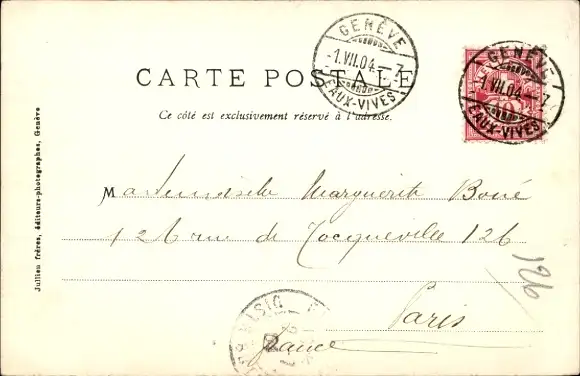 GENÈVE
-1.VII.04.-7
EAUX-VIVES
GENÈVE
-1.VII.04.-7
EAUX-VIVES
CARTE POSTALE
Ce côté est exclusivement réservé à l'adresse.
Mademoiselle Marguerite Boué
126 rue de Tocqueville 126
126
Paris
France
Jullien frères, éditeurs-photographes, Genève